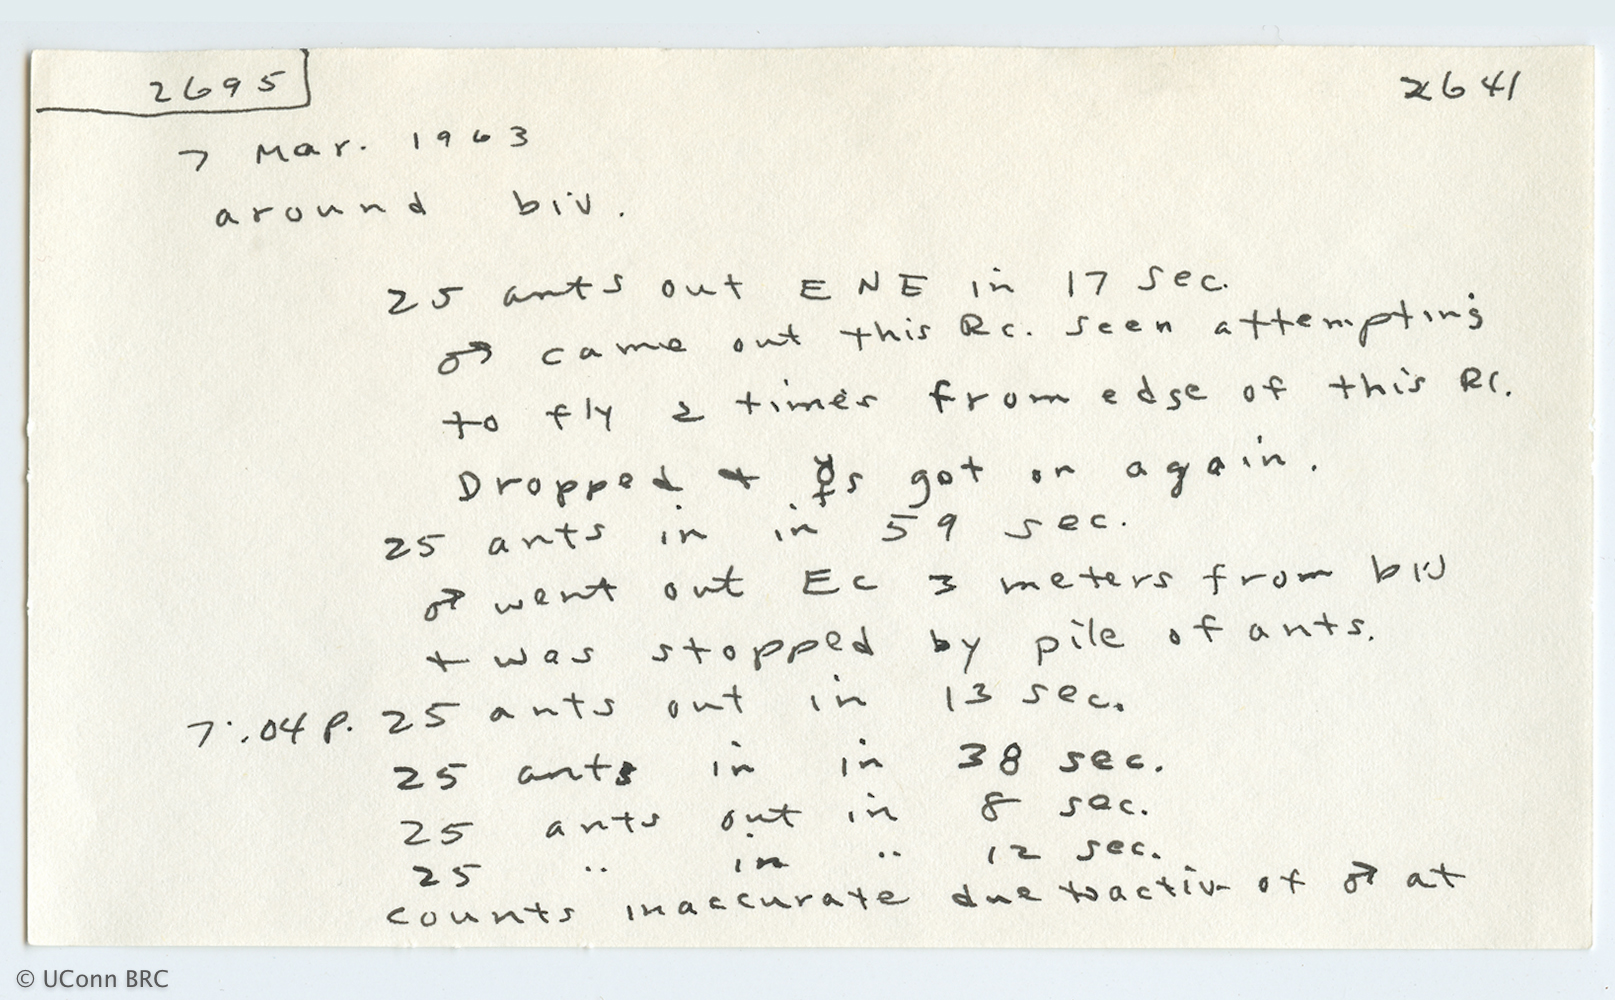 2695
2641
7 Mar. 1963
around biv.
25 ants out ENE in 17 sec.
♂ came out this Rc. seen attempting
to fly 2 times from edge of this Rc.
Dropped + ☿s got on again.
25 ants in in 59 sec.
♂ went out Ec 3 meters from biv
+ was stopped by pile of ants.
7:04 P. 25 ants out in 13 sec.
25 ants in in 38 sec.
25 ants out in 8 sec.
25 " in " 12 sec.
counts inaccurate due to activ of ♂ at
© UConn BRC